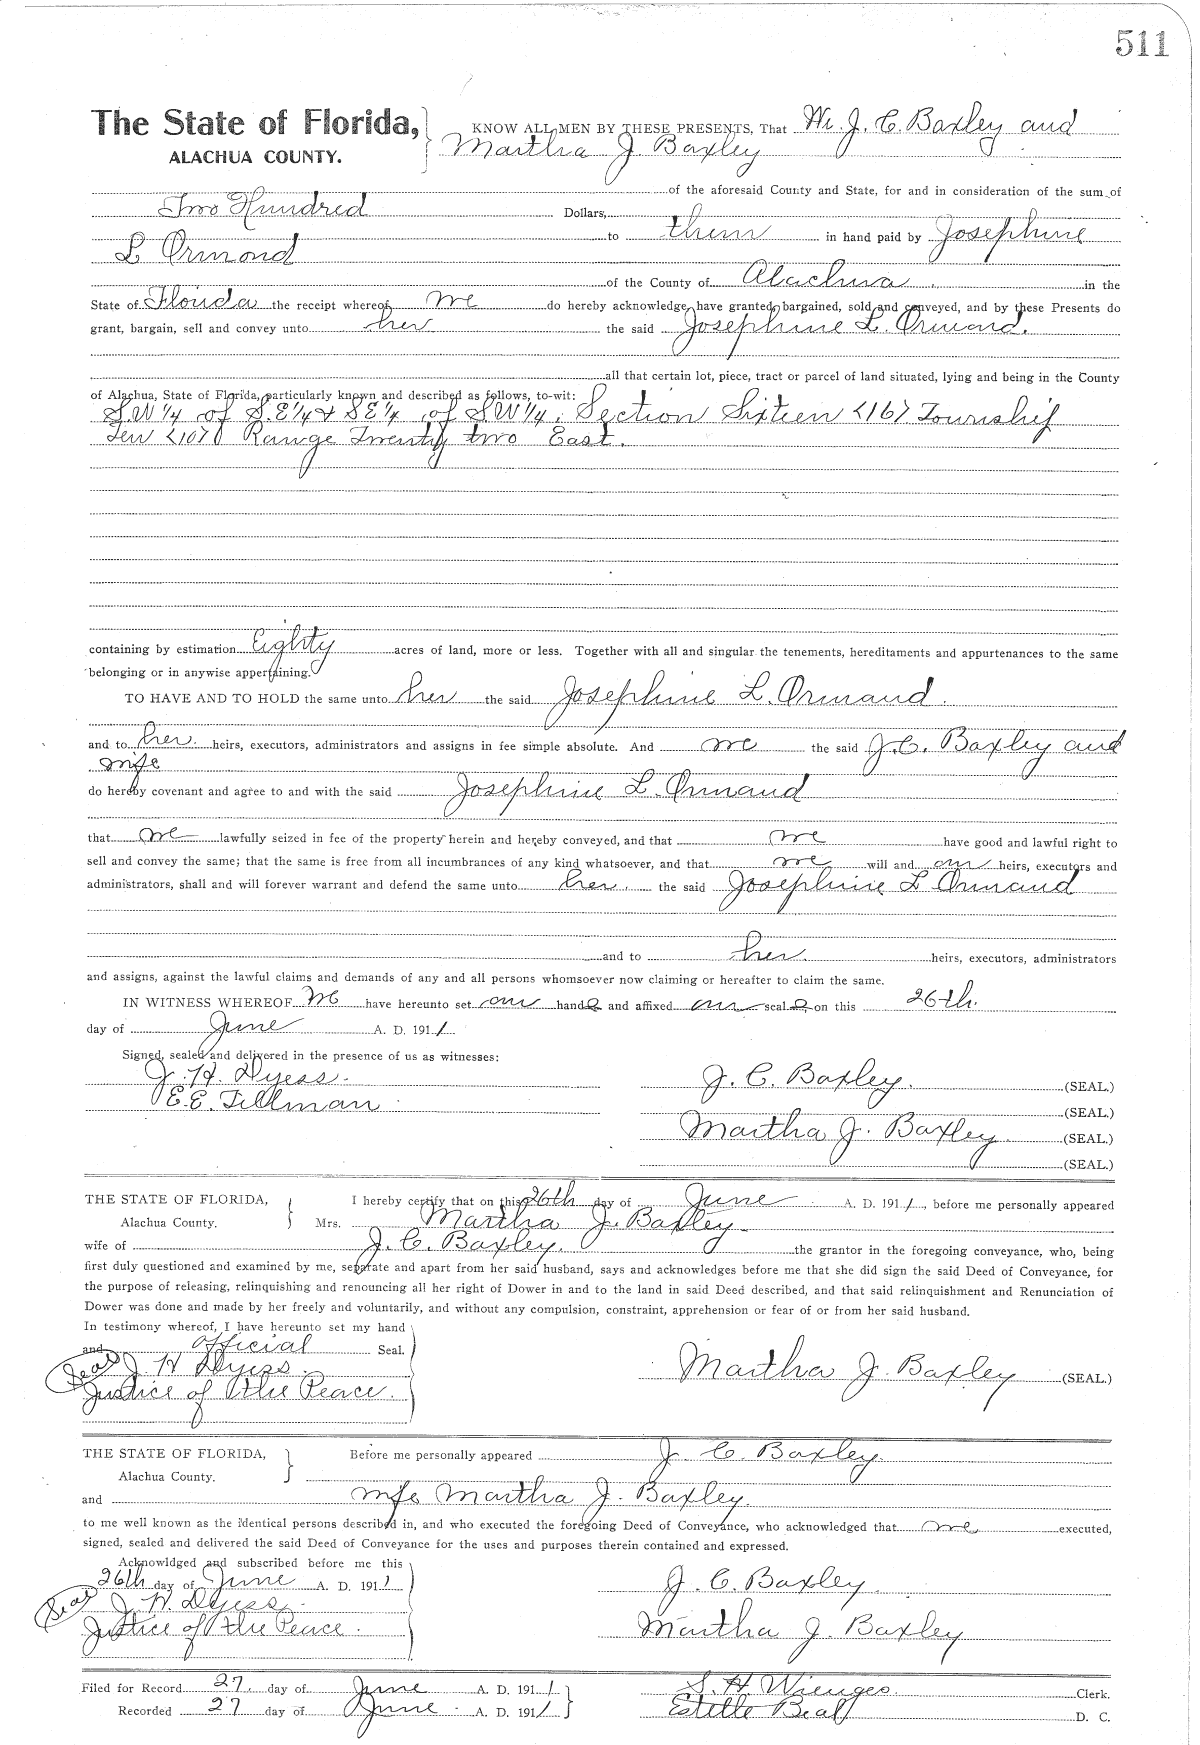 511
The State of Florida,
ALACHUA COUNTY.
KNOW ALL MEN BY THESE PRESENTS, That We J. C. Baxley and
Martha J Baxley
of the aforesaid County and State, for and in consideration of the sum of
Two Hundred Dollars,
to them in hand paid by Josephine
L Ormond
of the County of Alachua in the
State of Florida the receipt whereof we do hereby acknowledge, have granted, bargained, sold and conveyed, and by these Presents do
grant, bargain, sell and convey unto her the said Josephine L. Ormand.
all that certain lot, piece, tract or parcel of land situated, lying and being in the County
of Alachua, State of Florida, particularly known and described as follows, to-wit:
S.W 1/4 of S.E 1/4 & SE 1/4 of SW 1/4, Section Sixteen <16> Township
Ten <10> Range Twenty two East.
containing by estimation Eighty acres of land, more or less. Together with all and singular the tenements, hereditaments and appurtenances to the same
belonging or in anywise appertaining.
TO HAVE AND TO HOLD the same unto her the said Josephine L. Ormand.
and to her heirs, executors, administrators and assigns in fee simple absolute. And we the said J.C. Baxley and
wife
do hereby covenant and agree to and with the said Josephine L. Ormand
that we lawfully seized in fee of the property herein and hereby conveyed, and that we have good and lawful right to
sell and convey the same; that the same is free from all incumbrances of any kind whatsoever, and that we will and our heirs, executors and
administrators, shall and will forever warrant and defend the same unto her the said Josephine L Ormand
and to her heirs, executors, administrators
and assigns, against the lawful claims and demands of any and all persons whomsoever now claiming or hereafter to claim the same.
IN WITNESS WHEREOF We have hereunto set our hands and affixed our seals, on this 26th.
day of June A. D. 1911.
Signed, sealed and delivered in the presence of us as witnesses:
J. H. Dyess.
E.E. Tillman
J. C. Baxley. (SEAL.)
(SEAL.)
Martha J. Baxley. (SEAL.)
(SEAL.)
THE STATE OF FLORIDA,
Alachua County.
I hereby certify that on this 26th day of June A. D. 1911, before me personally appeared
Mrs. Martha J. Baxley
wife of J. C. Baxley. the grantor in the foregoing conveyance, who, being
first duly questioned and examined by me, separate and apart from her said husband, says and acknowledges before me that she did sign the said Deed of Conveyance, for
the purpose of releasing, relinquishing and renouncing all her right of Dower in and to the land in said Deed described, and that said relinquishment and Renunciation of
Dower was done and made by her freely and voluntarily, and without any compulsion, constraint, apprehension or fear of or from her said husband.
In testimony whereof, I have hereunto set my hand
and official Seal.
Seal J H Dyess.
Justice of the Peace.
Martha J. Baxley (SEAL.)
THE STATE OF FLORIDA,
Alachua County.
Before me personally appeared J. C. Baxley.
and wife Martha J. Baxley.
to me well known as the identical persons described in, and who executed the foregoing Deed of Conveyance, who acknowledged that we executed,
signed, sealed and delivered the said Deed of Conveyance for the uses and purposes therein contained and expressed.
Acknowldged and subscribed before me this
26th day of June A. D. 1911
Seal J. H. Dyess.
Justice of the Peace.
J. C. Baxley.
Martha J. Baxley
Filed for Record 27. day of June A. D. 1911
Recorded 27 day of June A. D. 1911
S. H. Wienges. Clerk.
Estelle Beal D. C.